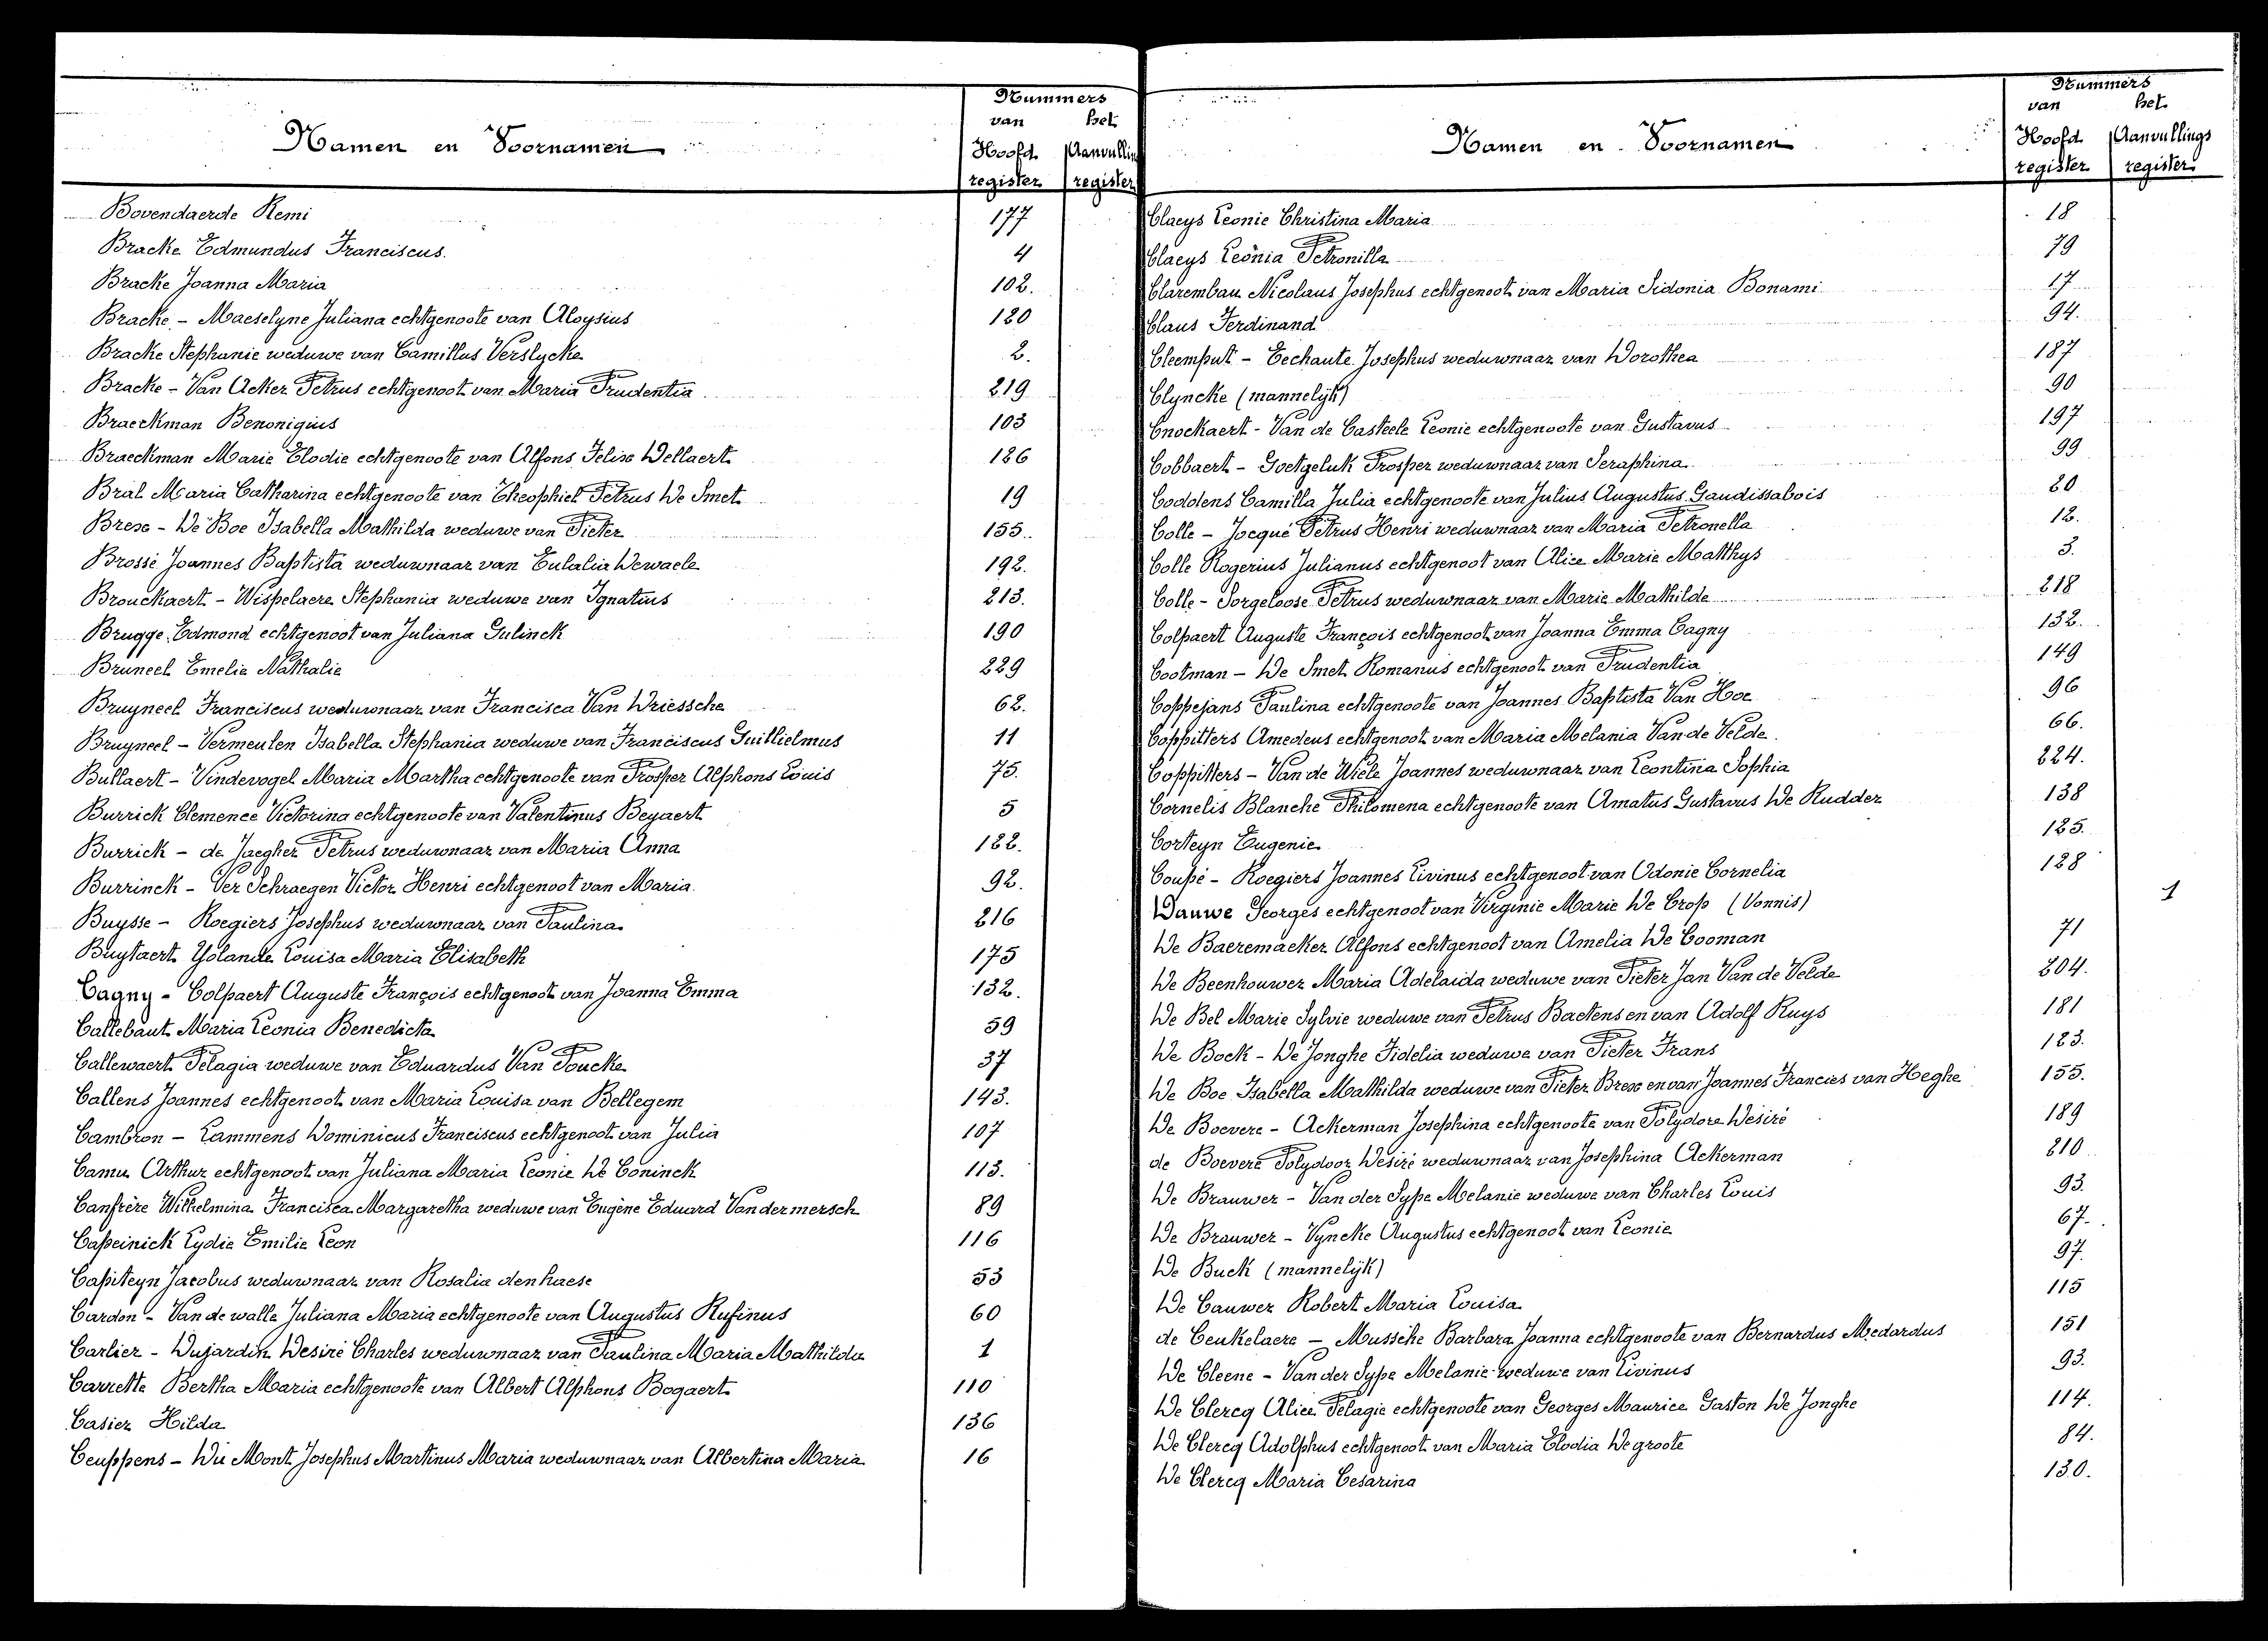 Nummers
van het
Namen en Voornamen
Hoofd Aanvullin
register register
Bovendaerde Remi 177
Bracke Edmundus Franciscus. 4
Bracke Joanna Maria 102.
Bracke - Maeselyne Juliana echtgenoote van Aloysius 120
Bracke Stephanie weduwe van Camillus Verslycke 2.
Bracke - Van Acker Petrus echtgenoot van Maria Prudentia 219
Braeckman Benonigius 103
Braeckman Marie Elodie echtgenoote van Alfons Felix Dellaert 126
Bral Maria Catharina echtgenoote van Theophiel Petrus De Smet 19
Brex - De Boe Isabella Mathilda weduwe van Pieter 155.
Brossé Joannes Baptista weduwnaar van Eulalia Dewaele 192.
Brouckaert - Wispelaere Stephania weduwe van Ignatius 213.
Brugge Edmond echtgenoot van Juliana Gulinck 190
Bruneel Emelie Nathalie 229
Bruyneel Franciscus weduwnaar van Francisca Van Driessche 62.
Bruyneel - Vermeulen Isabella Stephania weduwe van Franciscus Guillielmus 11
Bullaert - Vindevogel Maria Martha echtgenoote van Prosper Alphons Louis 75.
Burrick Clemence Victorina echtgenoote van Valentinus Beyaert 5
Burrick - de Jaegher Petrus weduwnaar van Maria Anna 122.
Burrinck - Ver Schraegen Victor Henri echtgenoot van Maria. 92.
Buysse - Roegiers Josephus weduwnaar van Paulina 216
Buytaert Yolande Louisa Maria Elisabeth 175
Cagny - Colpaert Auguste François echtgenoot van Joanna Emma 132.
Callebaut Maria Leonia Benedicta 59
Callewaert Pelagia weduwe van Eduardus Van Poucke 37
Callens Joannes echtgenoot van Maria Louisa van Bellegem 143.
Cambron - Lammens Dominicus Franciscus echtgenoot van Julia 107
Camu Arthur echtgenoot van Juliana Maria Leonie De Coninck 113.
Canfrère Wilhelmina Francisca Margaretha weduwe van Eugène Eduard Vandermersch 89
Capeinick Lydie Emilie Leon 116
Capiteyn Jacobus weduwnaar van Rosalia denhaese 53
Cardon - Van de walle Juliana Maria echtgenoote van Augustus Rufinus 60
Carlier - Dujardin Desiré Charles weduwnaar van Paulina Maria Mathilda 1
Carrette Bertha Maria echtgenoote van Albert Alphons Bogaert 110
Casier Hilda 136
Ceuppens - Du Mont Josephus Martinus Maria weduwnaar van Albertina Maria 16
Nummers
van het
Namen en Voornamen
Hoofd Aanvullings
register register
Claeys Leonie Christina Maria 18
Claeys Leonia Petronilla 79
Clarembau Nicolaus Josephus echtgenoot van Maria Sidonia Bonami 17
Claus Ferdinand 94.
Cleemput - Eechaute Josephus weduwnaar van Dorothea 187
Clyncke (mannelijk) 90
Cnockaert - Van de Casteele Leonie echtgenoote van Gustavus 197
Cobbaert - Goetgeluk Prosper weduwnaar van Seraphina 99
Coddens Camilla Julia echtgenoote van Julius Augustus Gaudissabois 20
Colle - Jocqué Petrus Henri weduwnaar van Maria Petronella 12.
Colle Rogerius Julianus echtgenoot van Alice Marie Matthys 3.
Colle - Sorgeloose Petrus weduwnaar van Marie Mathilde 218
Colpaert Auguste François echtgenoot van Joanna Emma Cagny 132.
Cootman - De Smet Romanus echtgenoot van Prudentia 149
Coppejans Paulina echtgenoote van Joannes Baptista Van Hoe 96
Coppitters Amedeus echtgenoot van Maria Melania Van de Velde. 66.
Coppitters - Van de Wiele Joannes weduwnaar van Leontina Sophia 224.
Cornelis Blanche Philomena echtgenoote van Amatus Gustavus De Rudder 138
Corteyn Eugenie 125.
Coupé - Roegiers Joannes Livinus echtgenoot van Odonie Cornelia 128
Dauwe Georges echtgenoot van Virginie Marie De Crop (Vonnis) 1
De Baeremaeker Alfons echtgenoot van Amelia De Cooman 71
De Beenhouwer Maria Adelaida weduwe van Pieter Jan Van de Velde 204.
De Bel Marie Sylvie weduwe van Petrus Baetens en van Adolf Ruys 181
De Bock - De Jonghe Fidelia weduwe van Pieter Frans 123.
De Boe Isabella Mathilda weduwe van Pieter Brex en van Joannes Francies van Heghe 155.
De Boevere - Ackerman Josephina echtgenoote van Polydore Desiré 189
de Boevere Polydoor Desiré weduwnaar van Josephina Ackerman 210
De Brauwer - Van der Sype Melanie weduwe van Charles Louis 93.
De Brauwer - Vyncke Augustus echtgenoot van Leonie 67.
De Buck (mannelijk) 97.
De Cauwer Robert Maria Louisa 115
de Ceukelaere - Mussche Barbara Joanna echtgenoote van Bernardus Medardus 151
De Cleene - Van der Sype Melanie weduwe van Livinus 93.
De Clercq Alice Pelagie echtgenoote van Georges Maurice Gaston De Jonghe 114.
De Clercq Adolphus echtgenoot van Maria Elodia De groote 84.
De Clercq Maria Cesarina 130.